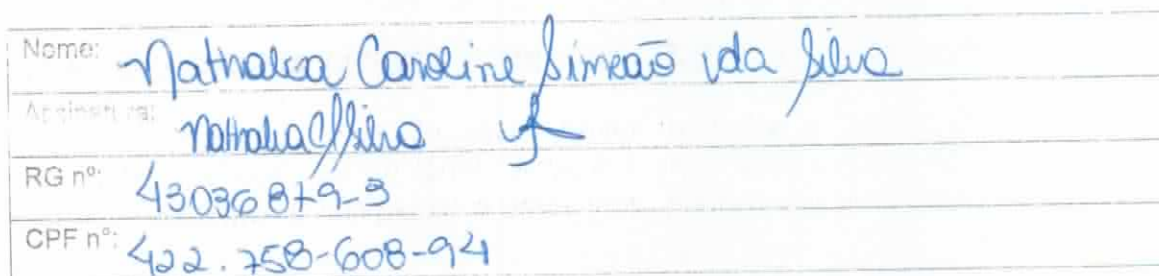 Nome: Nathalia Caroline Simeão da Silva
Assinatura: Nathalia CSSilva
RG nº: 43036879-3
CPF nº: 422.758-608-94